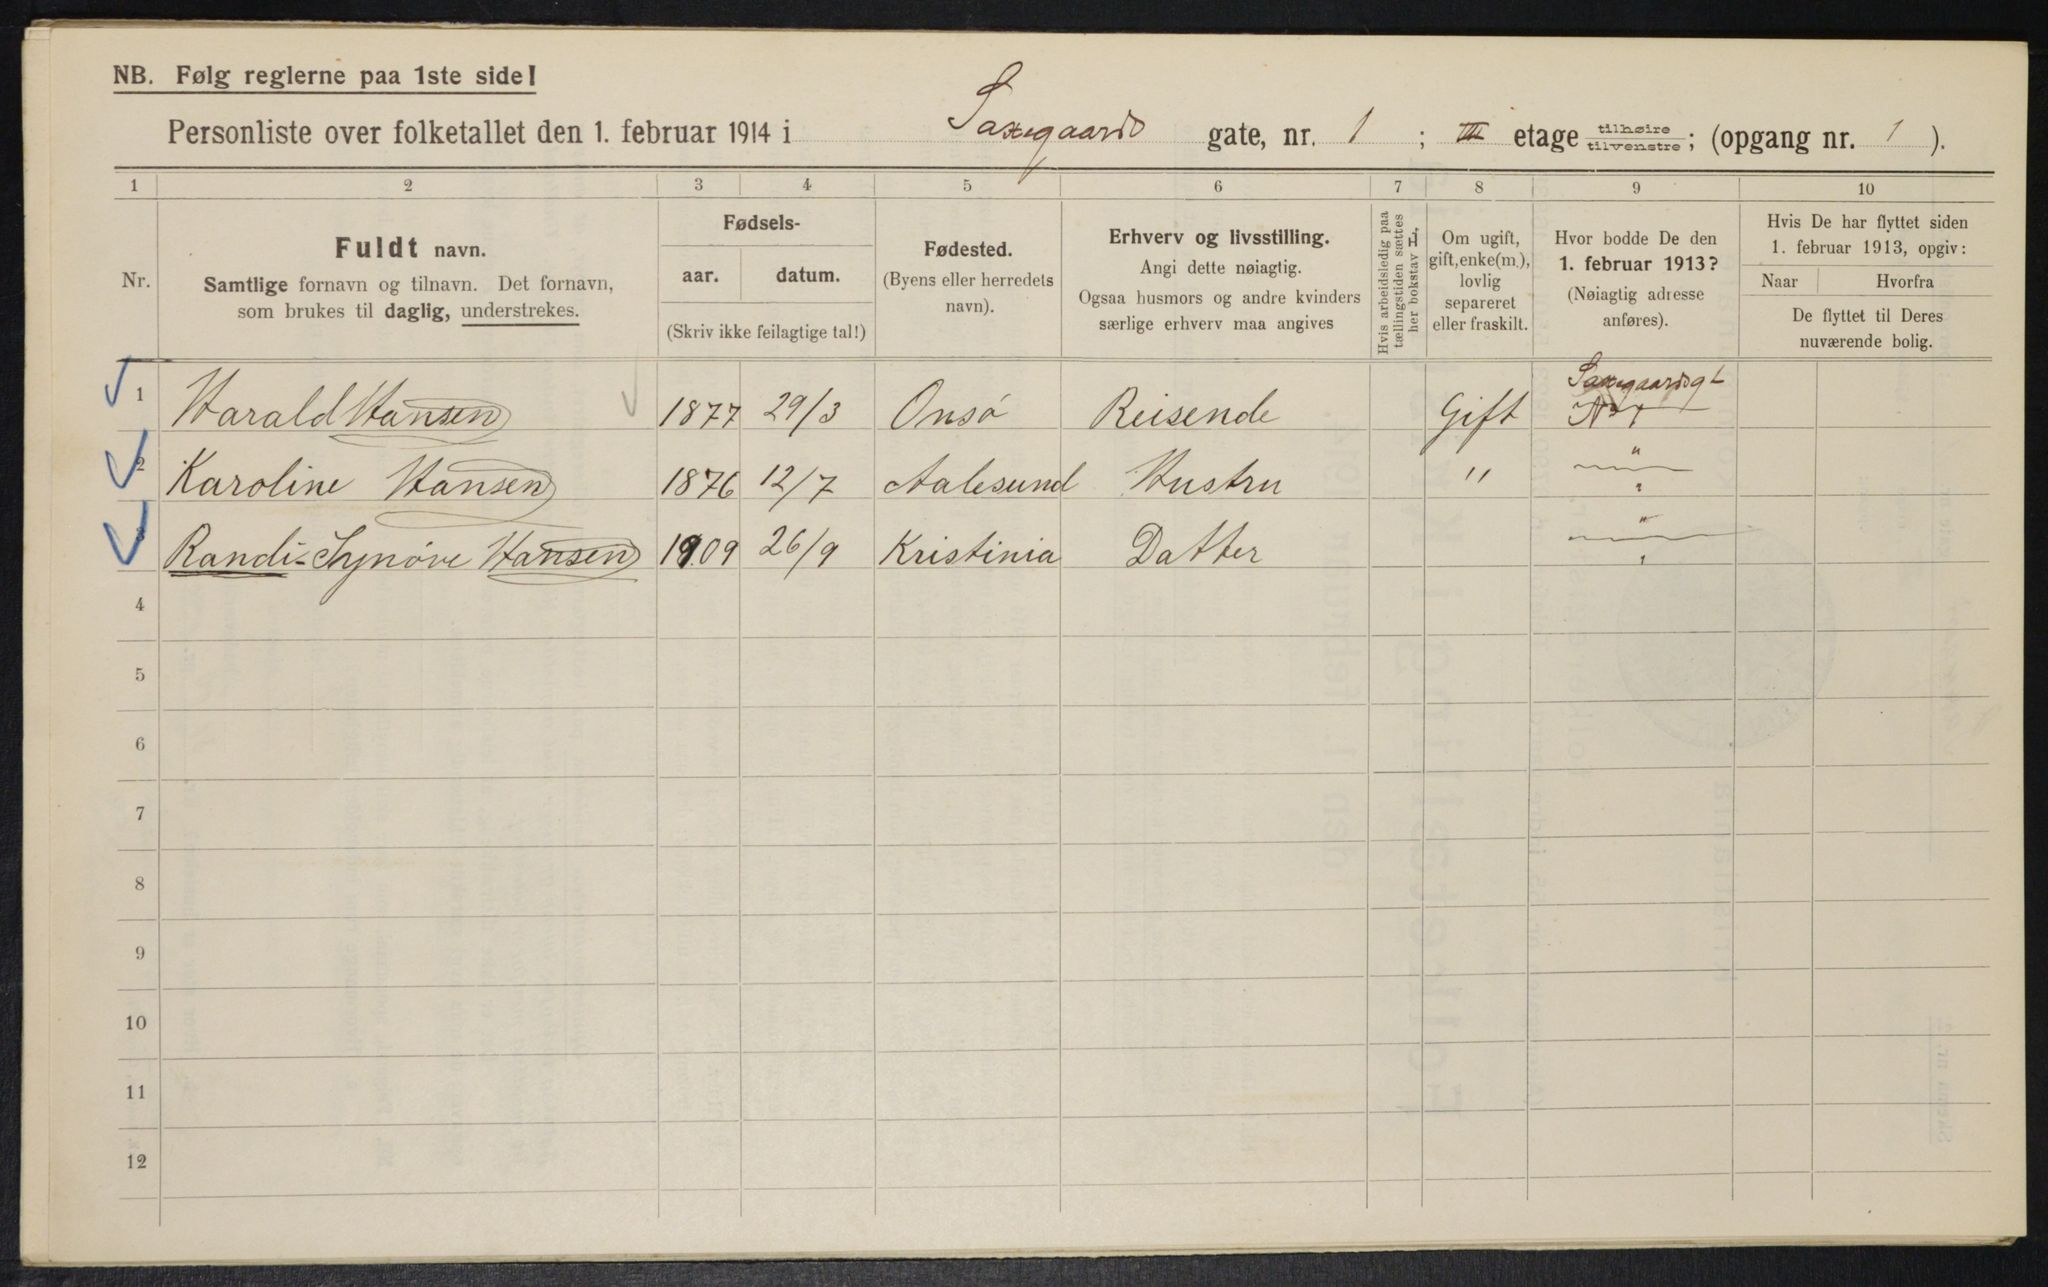 NB. Følg reglerne paa 1ste side!
Personliste over folketallet den 1. februar 1914 i Saxegaards gate, nr. 1 ; III etage tilhøire tilvenstre; (opgang nr. 1 ).
1 2 3 4 5 6 7 8 9 10
Nr.
Fuldt navn.
Samtlige fornavn og tilnavn. Det fornavn,
som brukes til daglig, understrekes.
Fødsels-
aar. datum.
(Skriv ikke feilagtige tal!)
Fødested.
(Byens eller herredets
navn).
Erhverv og livsstilling.
Angi dette nøiagtig.
Ogsaa husmors og andre kvinders
særlige erhverv maa angives
Hvis arbeidsledig paa
tællingstiden sættes
her bokstav L,
Om ugift,
gift, enke(m.),
lovlig
separeret
eller fraskilt.
Hvor bodde De den
1. februar 1913?
(Nøiagtig adresse
anføres).
Hvis De har flyttet siden
1. februar 1913, opgiv:
Naar Hvorfra
De flyttet til Deres
nuværende bolig.
1 Harald Hansen 1877 29/3 Onsö Reisende Gift Saxegaardsgt
No 1
2 Karoline Hansen 1876 12/7 Aalesund Hustru " "
3 Randi-Synøve Hansen 1909 26/9 Kristinia Datter "
4
5
6
7
8
9
10
11
12